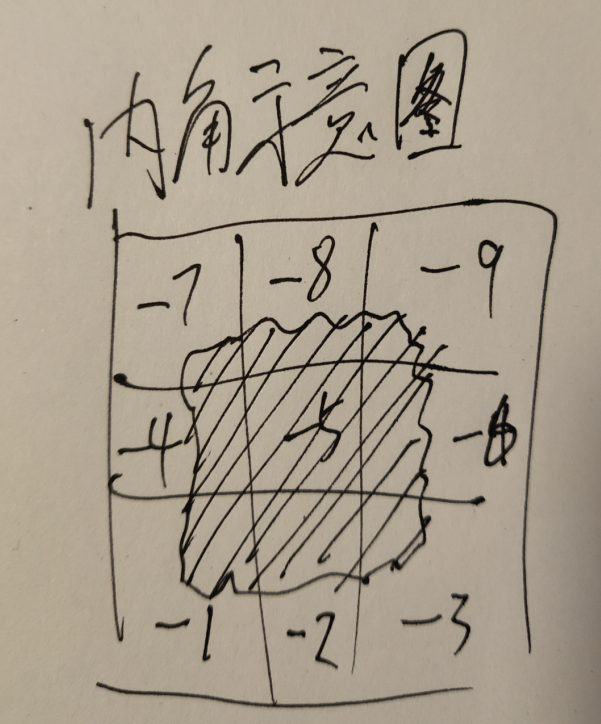 内角示意图
-7 -8 -9
-4 -5 -6
-1 -2 -3